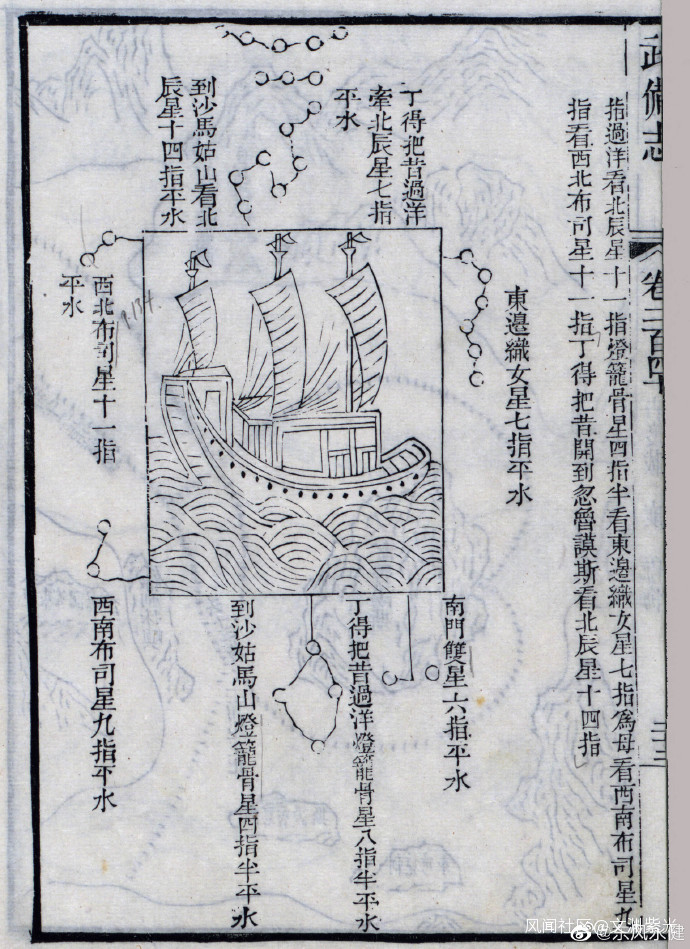 武備志
卷二百四十
指過洋看北辰星十一指燈籠骨星四指半看東邊織女星七指爲母看西南布司星九
指看西北布司星十一指丁得把昔開到忽魯謨斯看北辰星十四指
丁得把昔過洋
牽北辰星七指
平水
到沙馬姑山看北
辰星十四指平水
東邊織女星七指平水
西北布司星十一指
平水
南門雙星六指平水
丁得把昔過洋燈籠骨星八指半平水
到沙姑馬山燈籠骨星四指半平水
西南布司星九指平水
风闻社区@文渊紫光